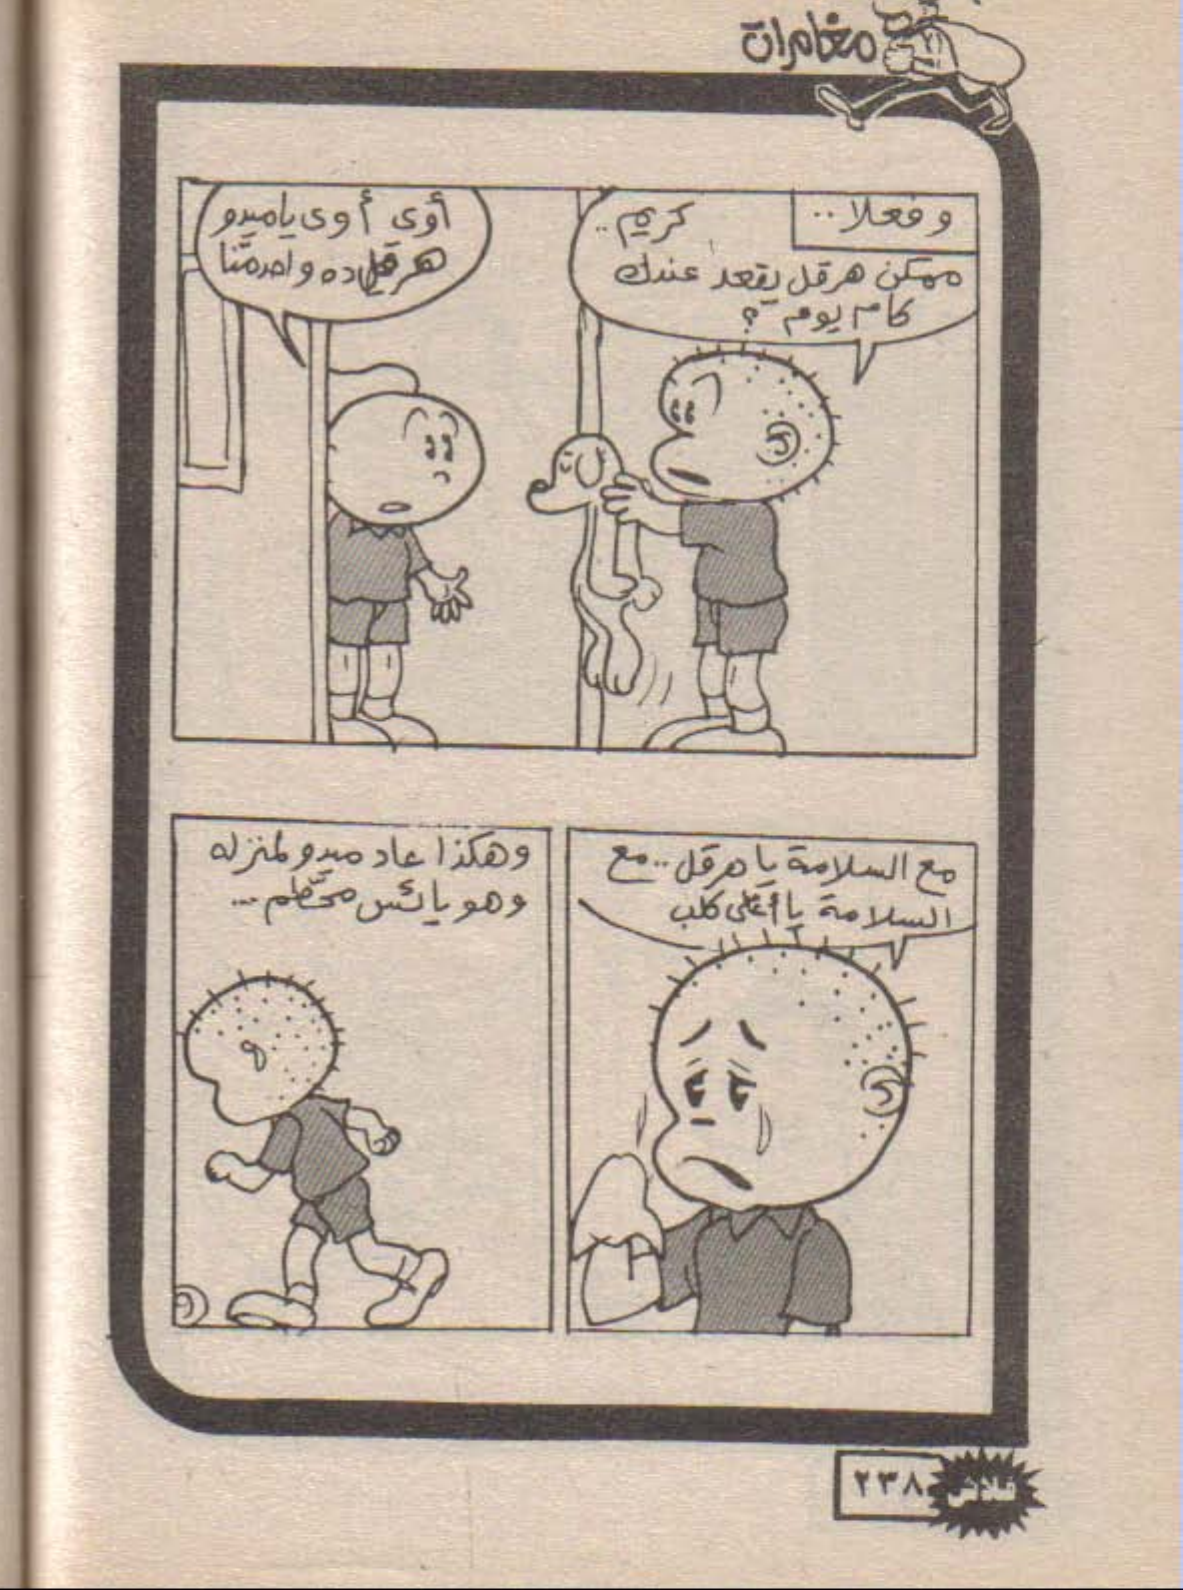 مغامرات
وفعلا..
كريم..
ممكن هرقل يقعد عندك
كام يوم؟
أوى أوى ياميدو
هرقل ده واحد منَّنا
مع السلامة ياهرقل.. مع
السلامة يا أغلى كلب
وهكذا عاد ميدو لمنزله
وهو يائس محطَّم...
٢٣٨
فلاش